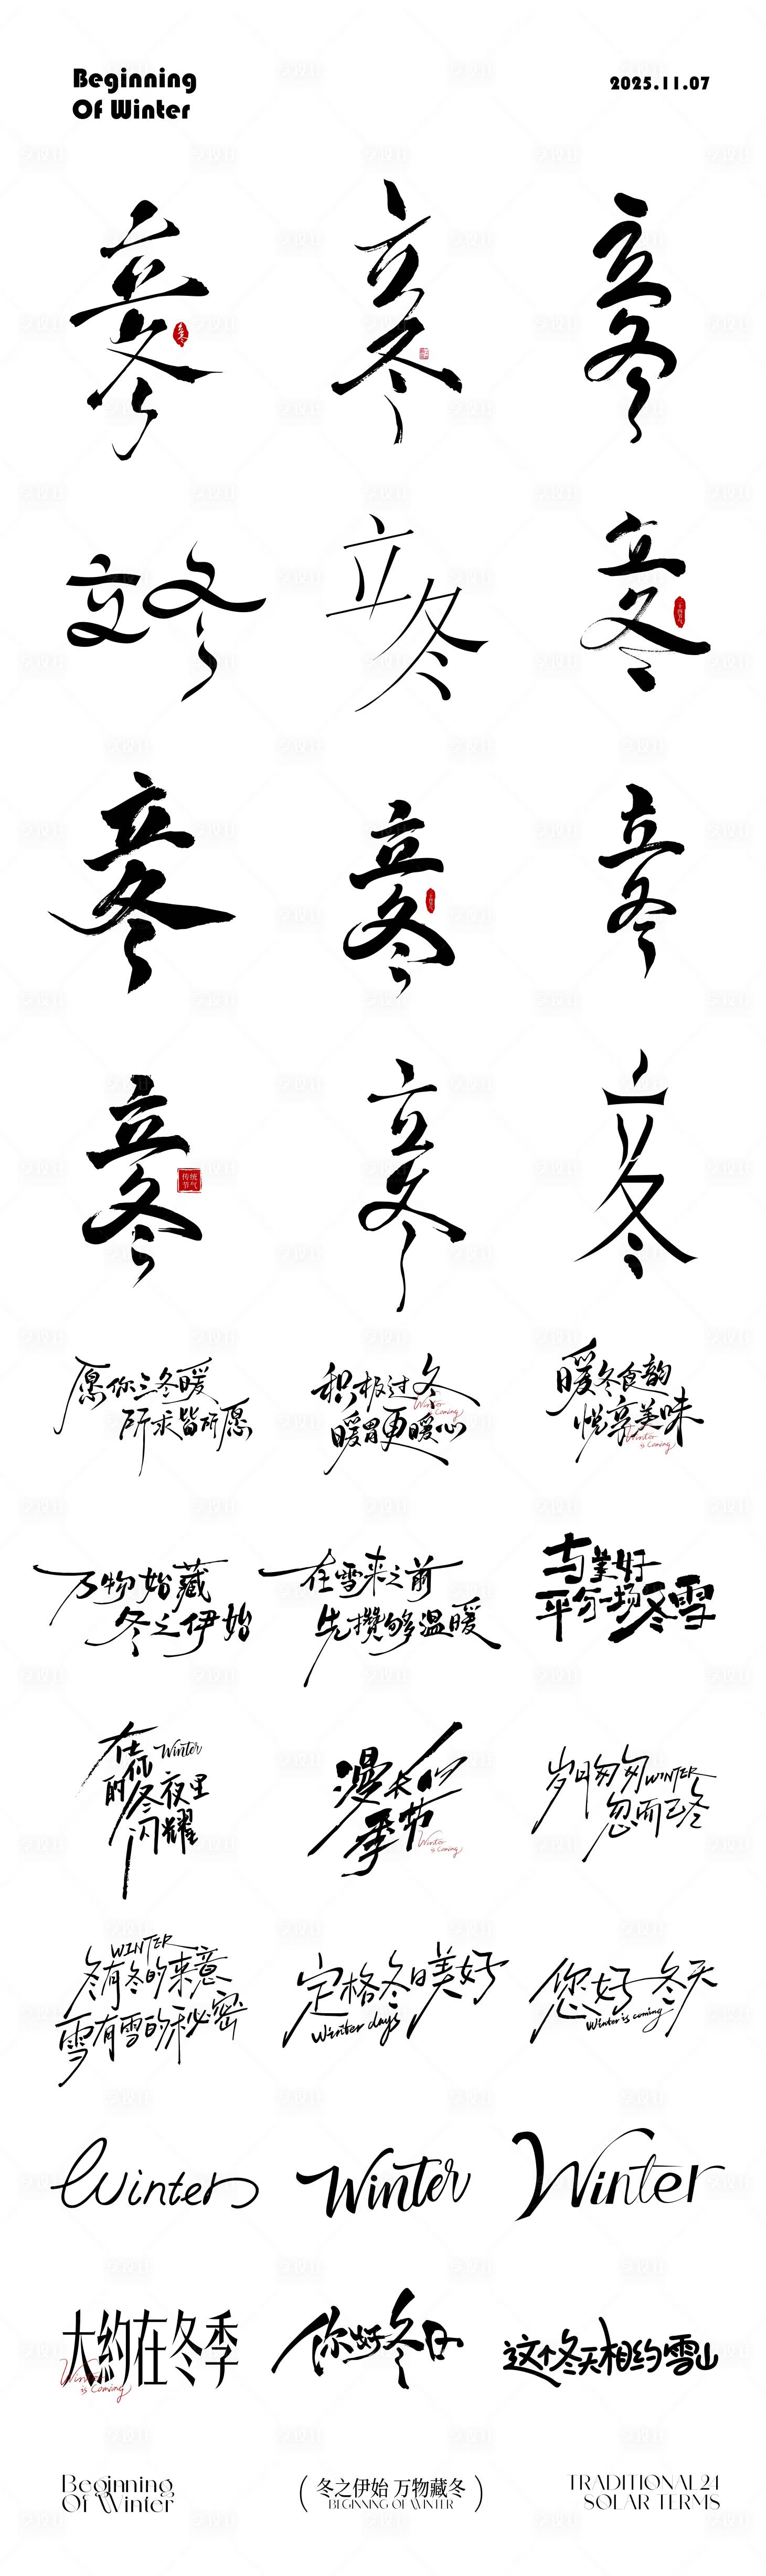 Beginning
Of Winter
2025.11.07
立冬
立冬
立冬
立冬
立冬
立冬
立冬
立冬
立冬
立冬
传统
节气
立冬
立冬
愿你三冬暖
所求皆所愿
积极过冬
Winter
is Coming
暖胃更暖心
暖冬食韵
悦享美味
Winter
is Coming
万物始藏
冬之伊始
在雪来之前
先攒够温暖
与美好
平分一场冬雪
在你
Winter
的冬夜里
闪耀
漫长的
季节
Winter
is Coming
岁月匆匆
WINTER
忽而已冬
WINTER
冬有冬的来意
雪有雪的秘密
定格冬日美好
Winter days
您好冬天
Winter is coming
Winter
Winter
Winter
大約在冬季
Winter
is Coming
你好冬日
这个冬天相约雪山
Beginning
Of Winter
(冬之伊始 万物藏冬)
BEGINNING OF WINTER
TRADITIONAL 24
SOLAR TERMS